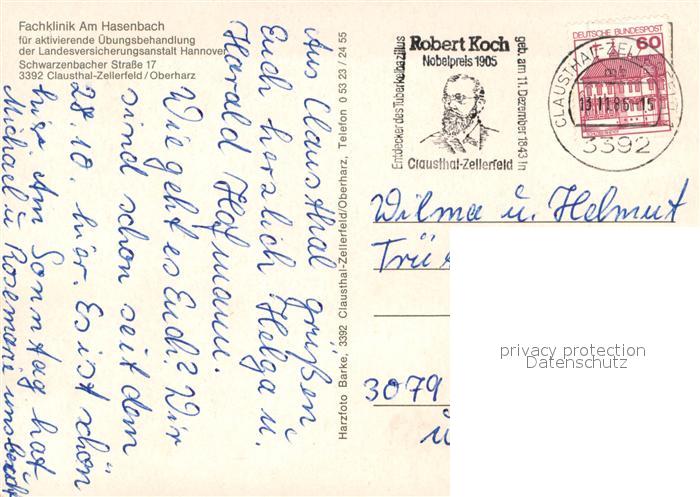 Fachklinik Am Hasenbach
für aktivierende Übungsbehandlung
der Landesversicherungsanstalt Hannover
Schwarzenbacher Straße 17
3392 Clausthal-Zellerfeld/Oberharz
Aus Clausthal grüßen
Euch herzlich Helga u.
Harald Hofmann.
Wie geht es Euch? Wir
sind schon seit dem
28.10. hier. Es ist schön
hier. Am Sonntag hat
Michael u Rosemarie uns besucht
Harzfoto Barke, 3392 Clausthal-Zellerfeld/Oberharz, Telefon 0 53 23 / 24 55
Entdecker des Tuberkelbazillus
Robert Koch
Nobelpreis 1905
geb. am 11. Dezember 1843 in
Clausthal-Zellerfeld
DEUTSCHE BUNDESPOST
60
CLAUSTHAL-ZELLERFELD
13.11.86.-15
3392
Wilma u. Helmut
Trü
3079
privacy protection
Datenschutz